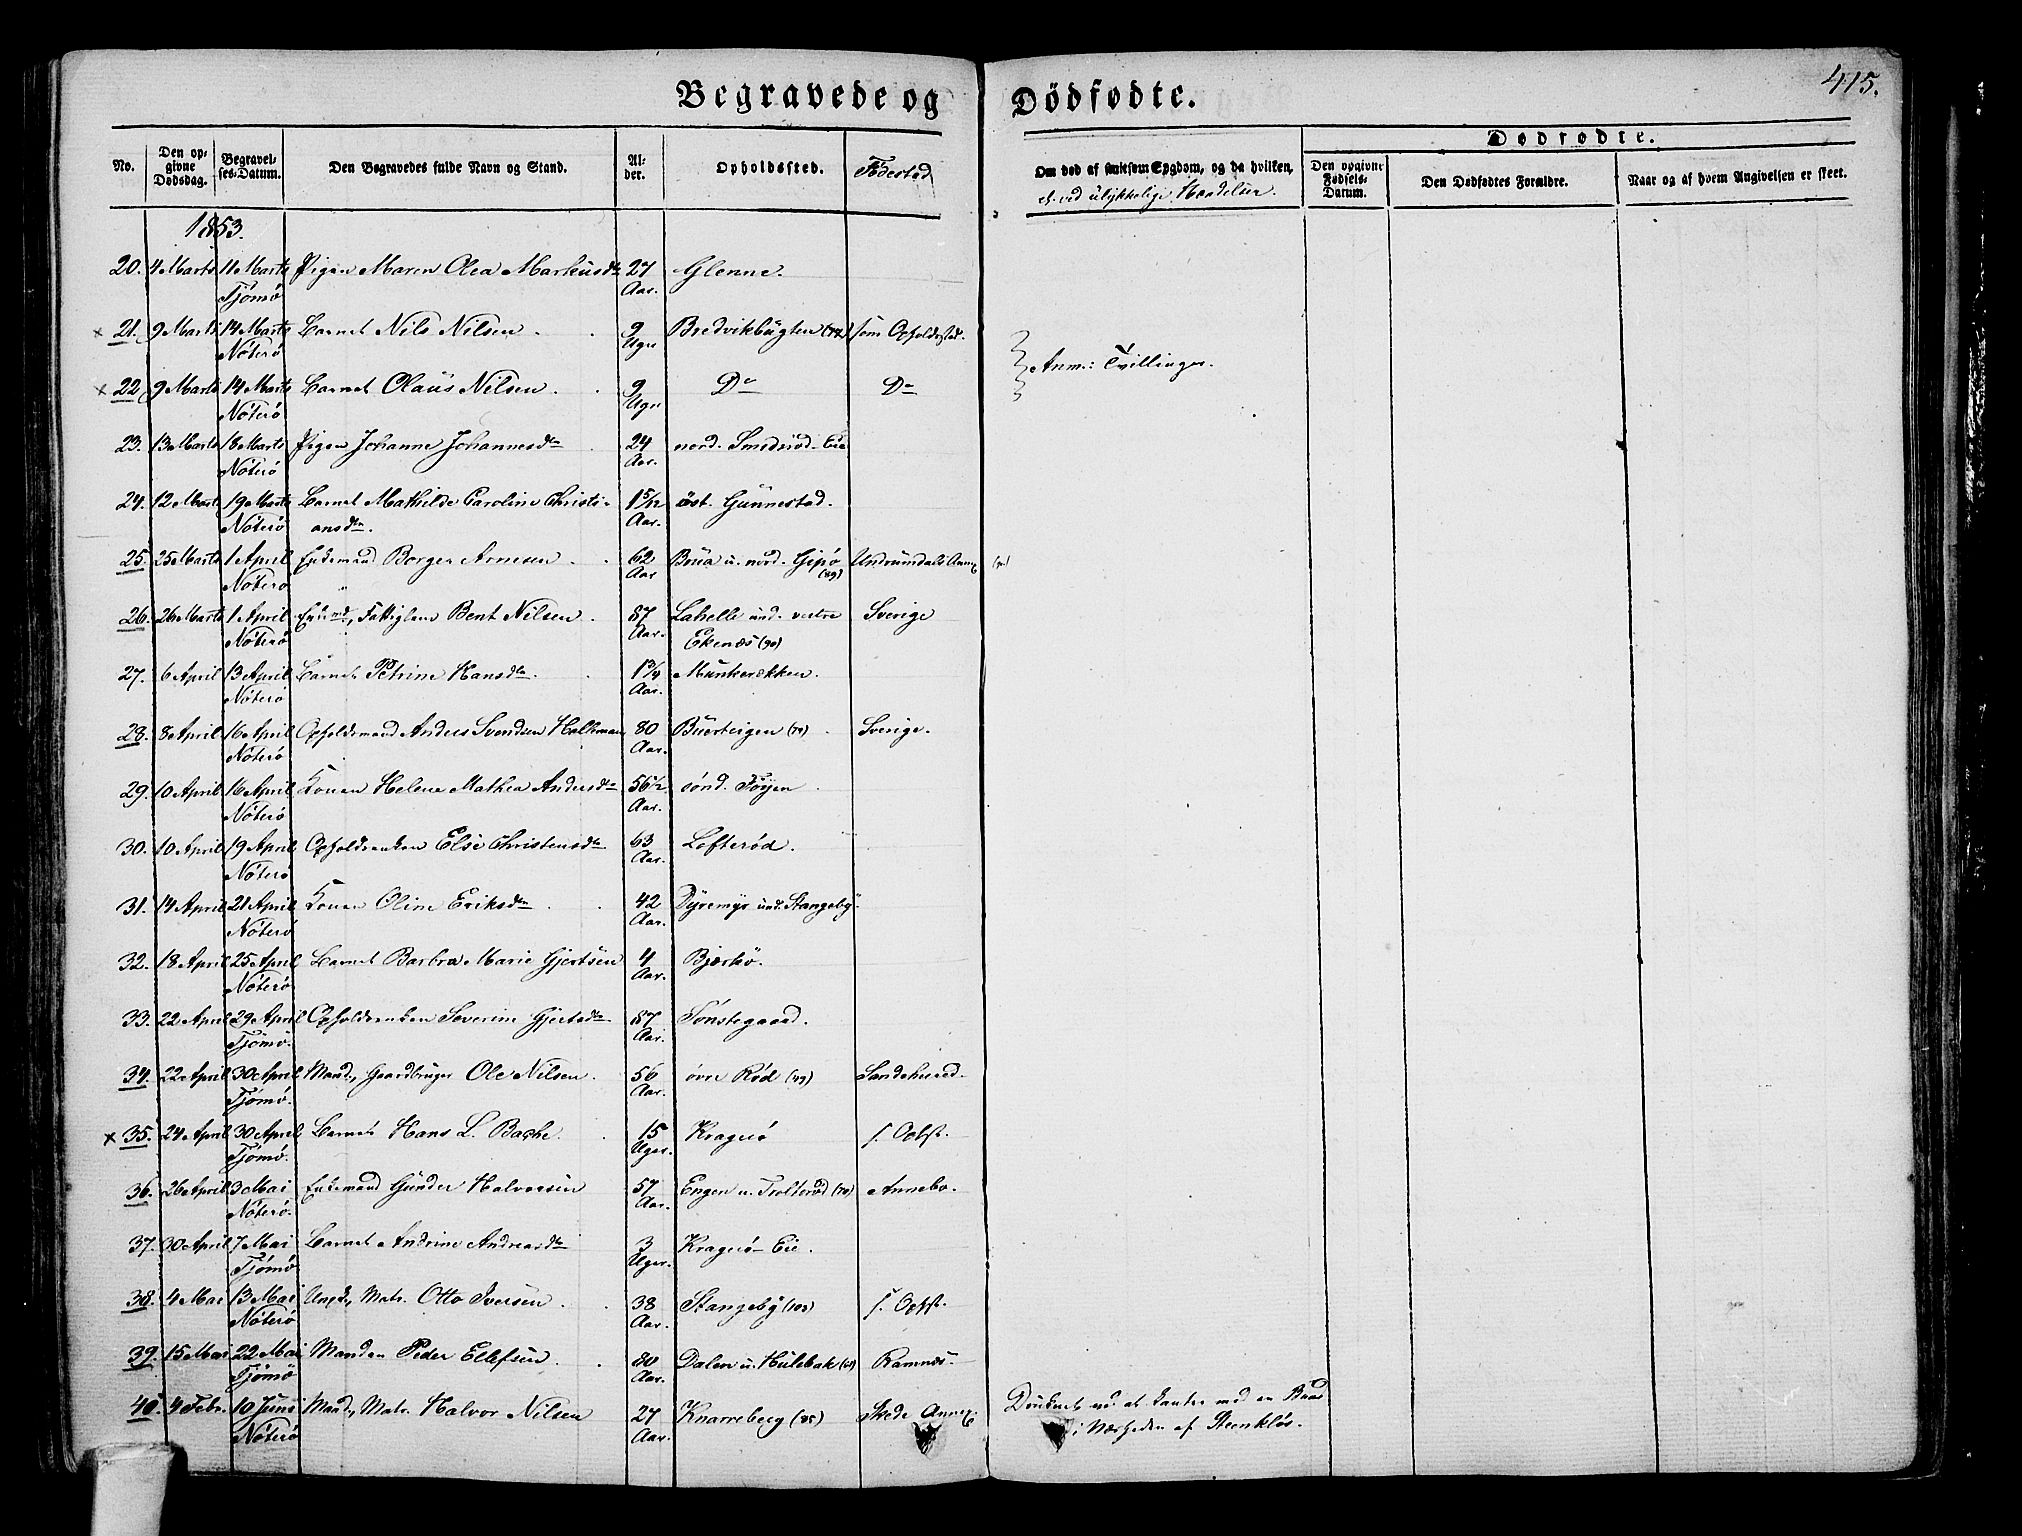 Begravede og Dödfødte.
415.
No.
Den opgivne Dødsdag.
Begravelses-Datum.
Den Begravedes fulde Navn og Stand.
Alder.
Opholdssted.
Födestad
Om død af smitsom Sygdom, og da hvilken,
el. ved ulykkelige Hændelser.
Dødfødte.
Den opgivne Fødsels-Datum.
Den Dødfødtes Forældre.
Naar og af hvem Angivelsen er skeet.
1853.
20. 4 Marts 11 Marts Pigen Maren Olea Markusdtr 27 Glenne.
Tjømø Aar.
× 21. 9 Marts 14 Marts Barnet Nils Nilsen. 9 Bredvikbugten som Opholdsstad.
Nøterø Uger
Anm: Tvillinger.
× 22. 9 Marts 14 Marts Barnet Olaus Nilsen. 9 Do Do
Nøterø Uger
23. 13 Marts 18 Marts Pigen Johanne Johannesdtr 24 nord. Smidsröd-Eie
Nøterø Aar.
24. 12 Marts 19 Marts Barnet Mathilde Caroline Christi- 1 5/12 öst. Gunnestad.
Nøterø ansdtr. Aar.
25. 25 Marts 1 April Enkemand Borger Arnesen. 62 Brua u. nord. Gipø (49) Undrumdals Annex
Nøterø Aar
26. 26 Marts 1 April Enkemd, Fattiglem Bent Nilsen. 87 Lahelle und. vestre Sverige
Nøterø Aar. Ekenæs (90)
27. 6 April 13 April Barnet Petrine Hansdtr. 1 3/4 Munkerækken.
Nøterø Aar.
28. 8 April 16 April Opholdsmand Anders Svendsen Hallman 80 Buerteigen (79). Sverige.
Nøterø Aar.
29. 10 April 16 April Konen Helene Mathea Andersdtr 56 1/2 sönd. Föyen
Nøterø Aar.
30. 10 April 19 April Opholdsenken Else Christensdtr 63 Lofteröd.
Nøterø Aar.
31. 14 April 21 April Konen Oline Eriksdtr. 42 Dyremyr und. Stangeby.
Nøterø Aar.
32. 18 April 25 April Barnet Barbra Marie Gjertsen 4 Bjerkö.
Nøterø Aar.
33. 22 April 29 April Opholdsenken Severine Gjertsdtr 87 Tönstegaard.
Tjømø. Aar.
34. 22 April 30 April Mand, Gaardbruger Ole Nilsen. 56 övre Röd (49) Sandehered.
Tjømø. Aar.
× 35. 24 April 30 April Barnet Hans L. Bache. 15 Kragerö s. Opst.
Tjømø. Uger.
36. 26 April 3 Mai Enkemand Gunder Halvorsen 57 Engen u. Trolleröd (70) Annebo.
Nøterø. Aar.
37. 30 April 7 Mai Barnet Andrine Andreasdtr 3 Kragerö-Eie.
Tjømø Uger.
38. 4 Mai 13 Mai Ungk, Matr. Otto Iversen. 38 Stangeby (103) s. Opst.
Nøterø Aar.
39. 15 Mai 22 Mai Manden Peder Ellefsen. 80 Dalen u. Hulebak Ramnes.
Tjømø Aar.
40. 4 Febr. 10 Juni Mand, Matr. Halvor Nilsen 27 Knarreberg (85) Skede Annex.
Nøterø Aar.
Druknet ved at kantre med en Baad
i Nærheden af Steenklös.